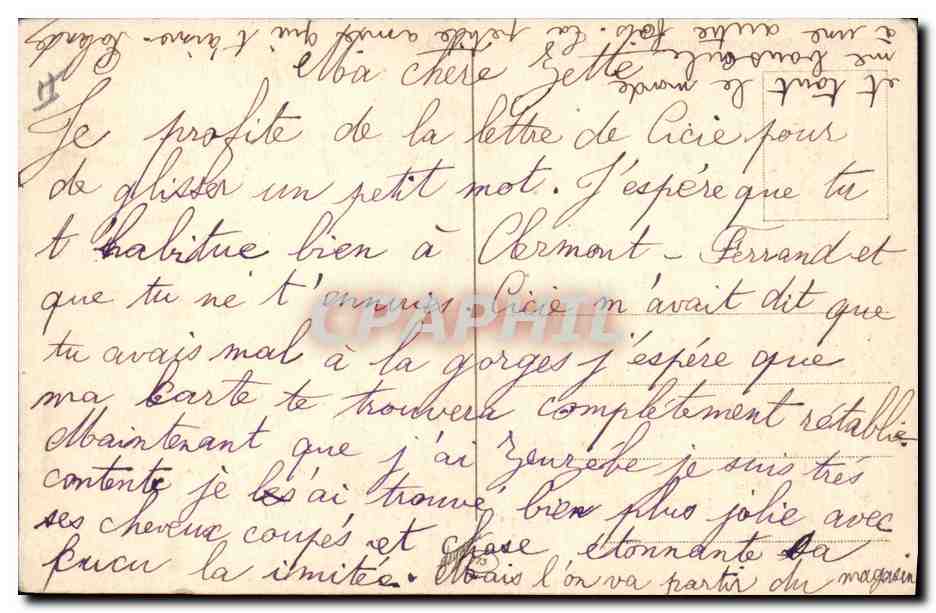 Ma chère Zette
Je profite de la lettre de Cicie pour
de glisser un petit mot. J'espére que tu
t'habitue bien à Clermont-Ferrand et
que tu ne t'ennuies. Cicie m'avait dit que
tu avais mal à la gorges j'espére que
ma carte te trouvera complètement rétablie.
Maintenant que j'ai Zeuzèbe je suis très
contente je l'ai trouvé bien plus jolie avec
ses cheveux coupés et chose étonnante La
Cucu la imitée. Mais l'on va partir du magasin
et tout le monde
me bouscule
à une autre fois. La petite amie qui t'aime. Rolande
CPAPHIL